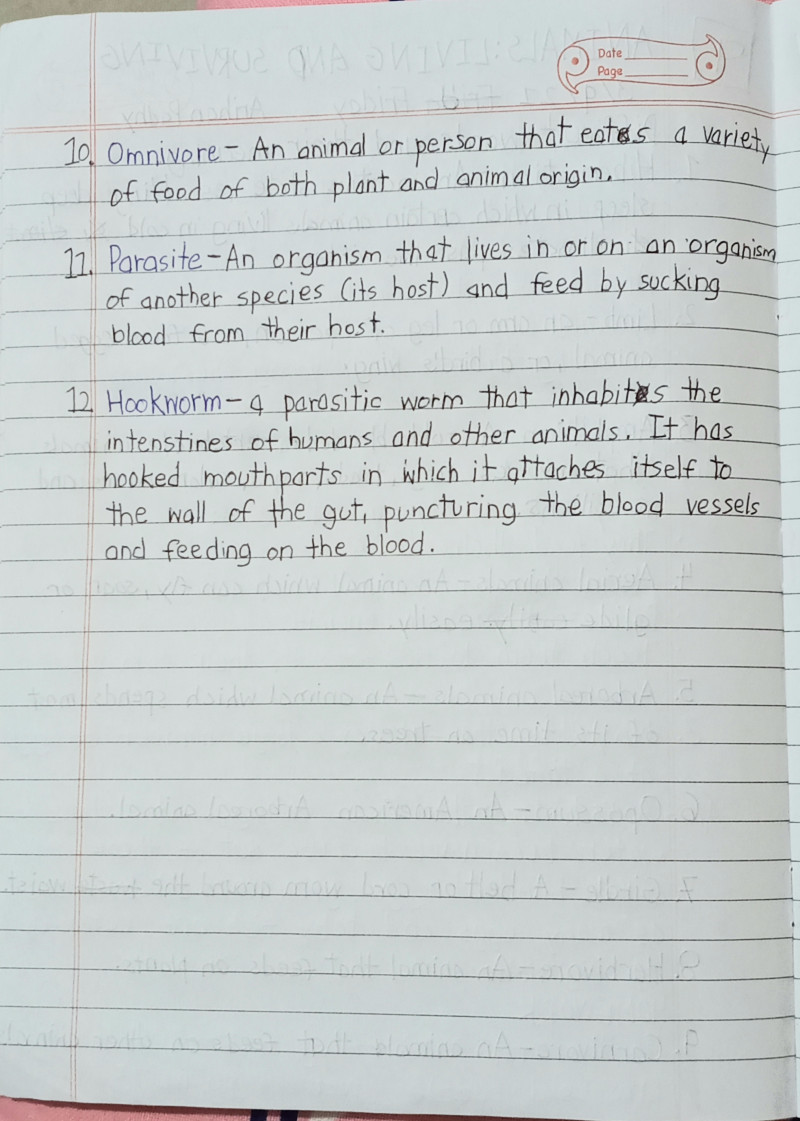 Date
Page
10. Omnivore - An animal or person that eats a variety
of food of both plant and animal origin.
11. Parasite - An organism that lives in or on an organism
of another species (its host) and feed by sucking
blood from their host.
12. Hookworm - a parasitic worm that inhabits the
intenstines of humans and other animals. It has
hooked mouthparts in which it attaches itself to
the wall of the gut, puncturing the blood vessels
and feeding on the blood.